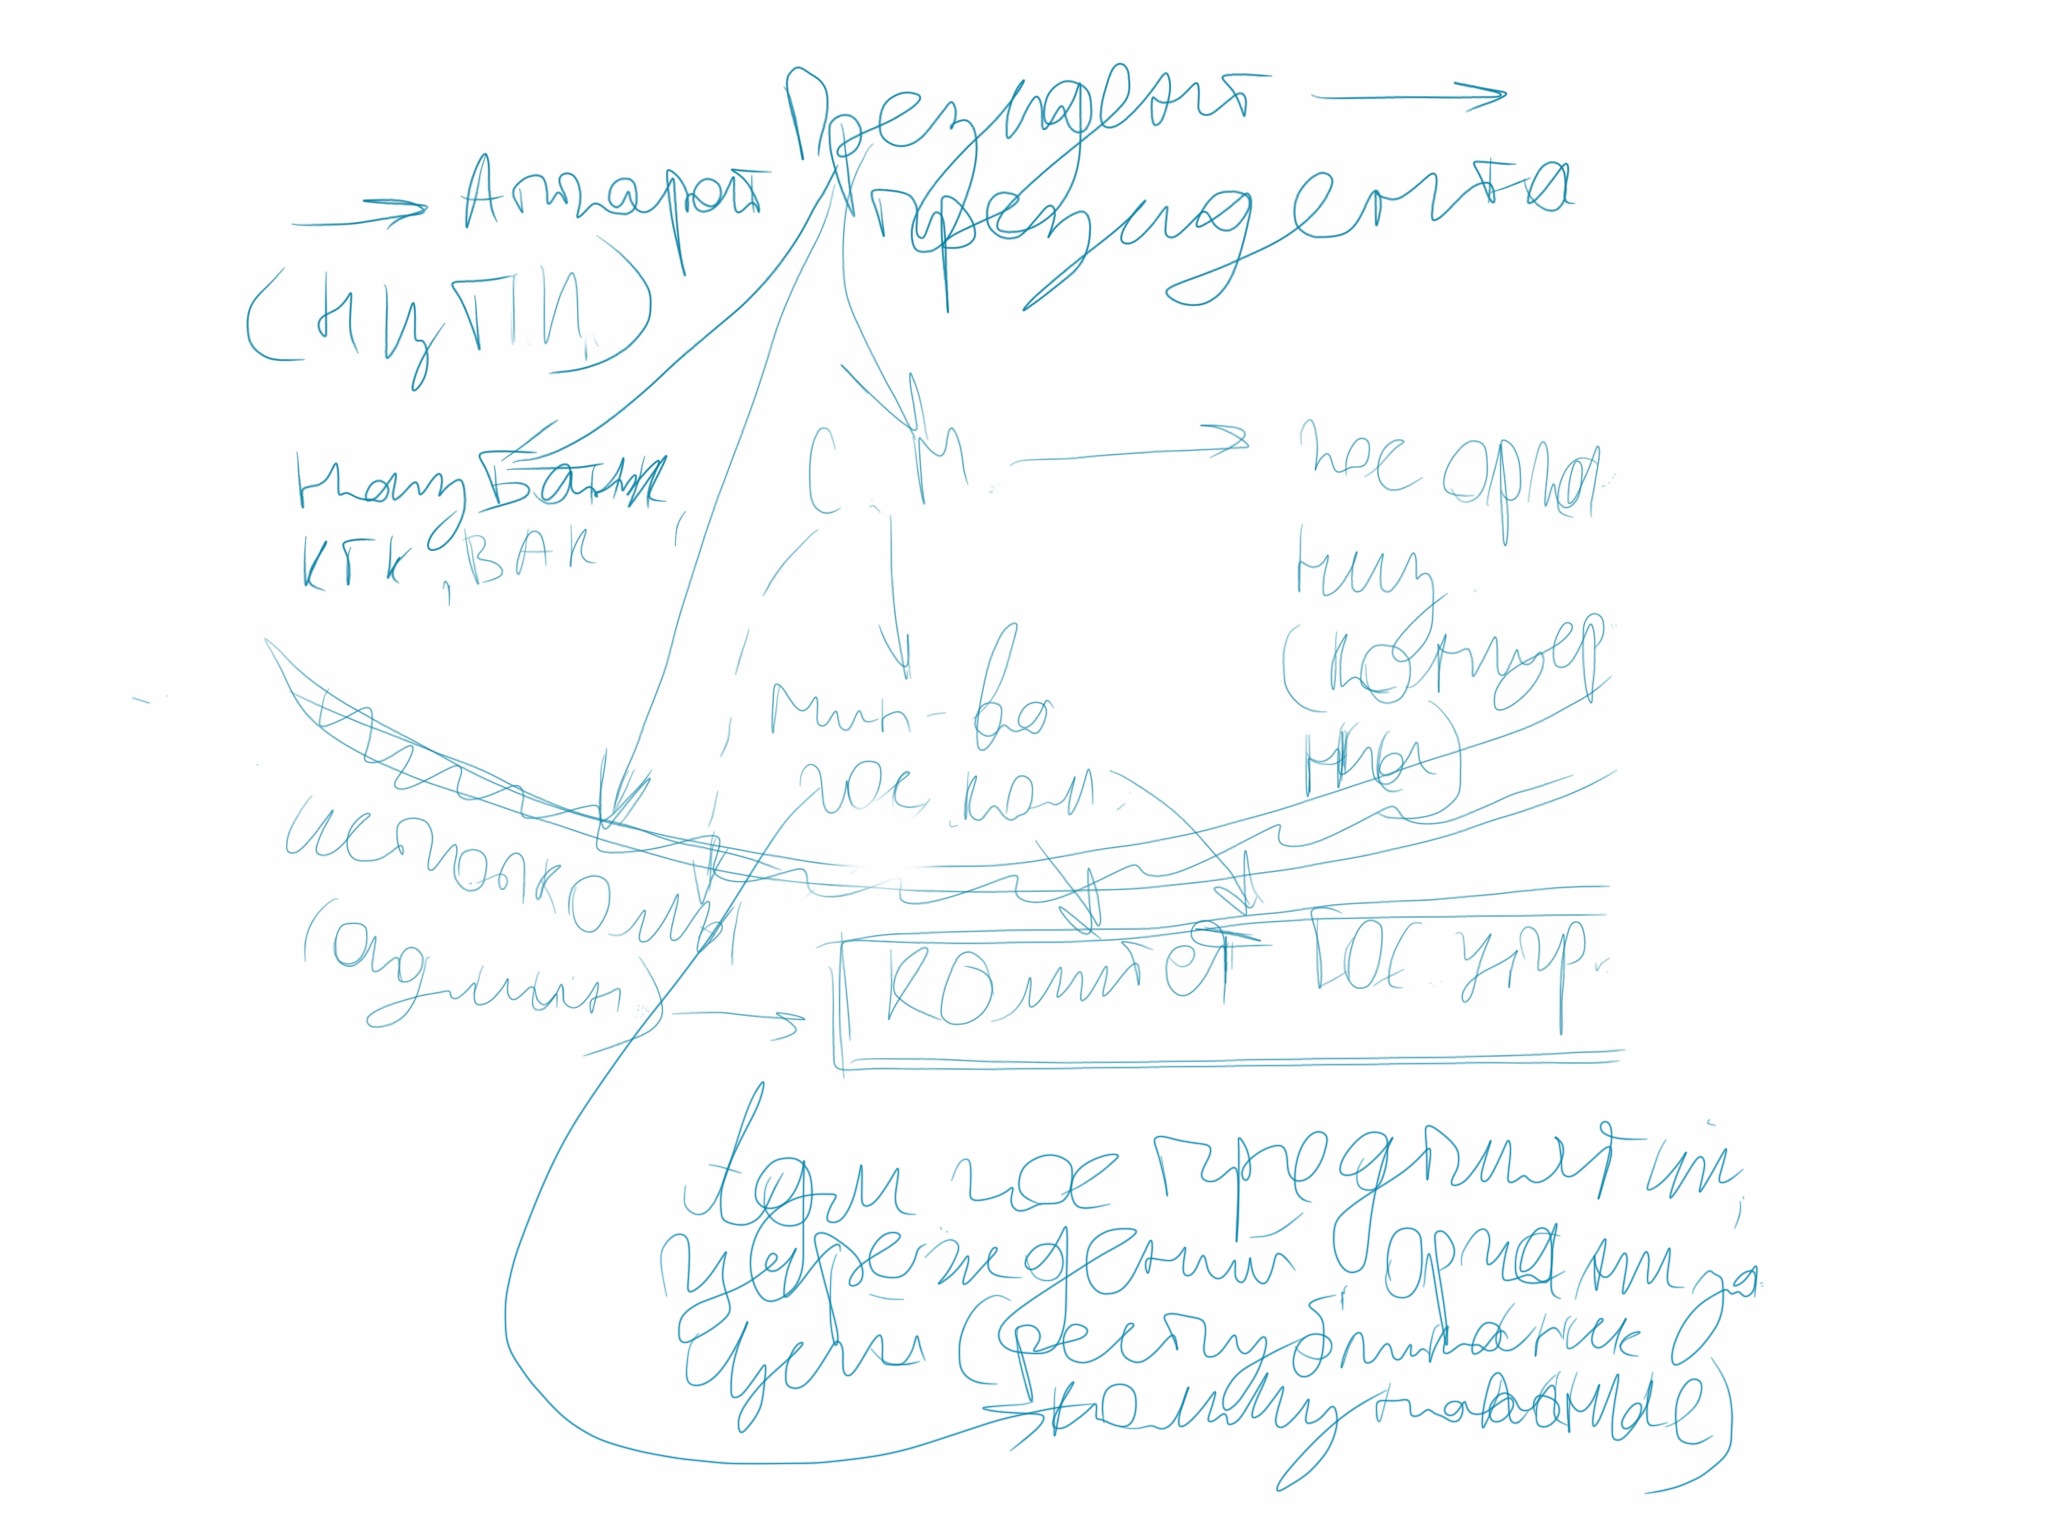 Президент
Аппарат Президента
(НЦПИ)
СМ
гос орга
НацБанк
КГК, ВАК
низ
(концер
ны)
мин-ва
гос. ком.
исполкомы
(админ)
Комитет Гос упр.
Адм гос предприятий,
учреждений организа
ций (республиканск
коммунальные)